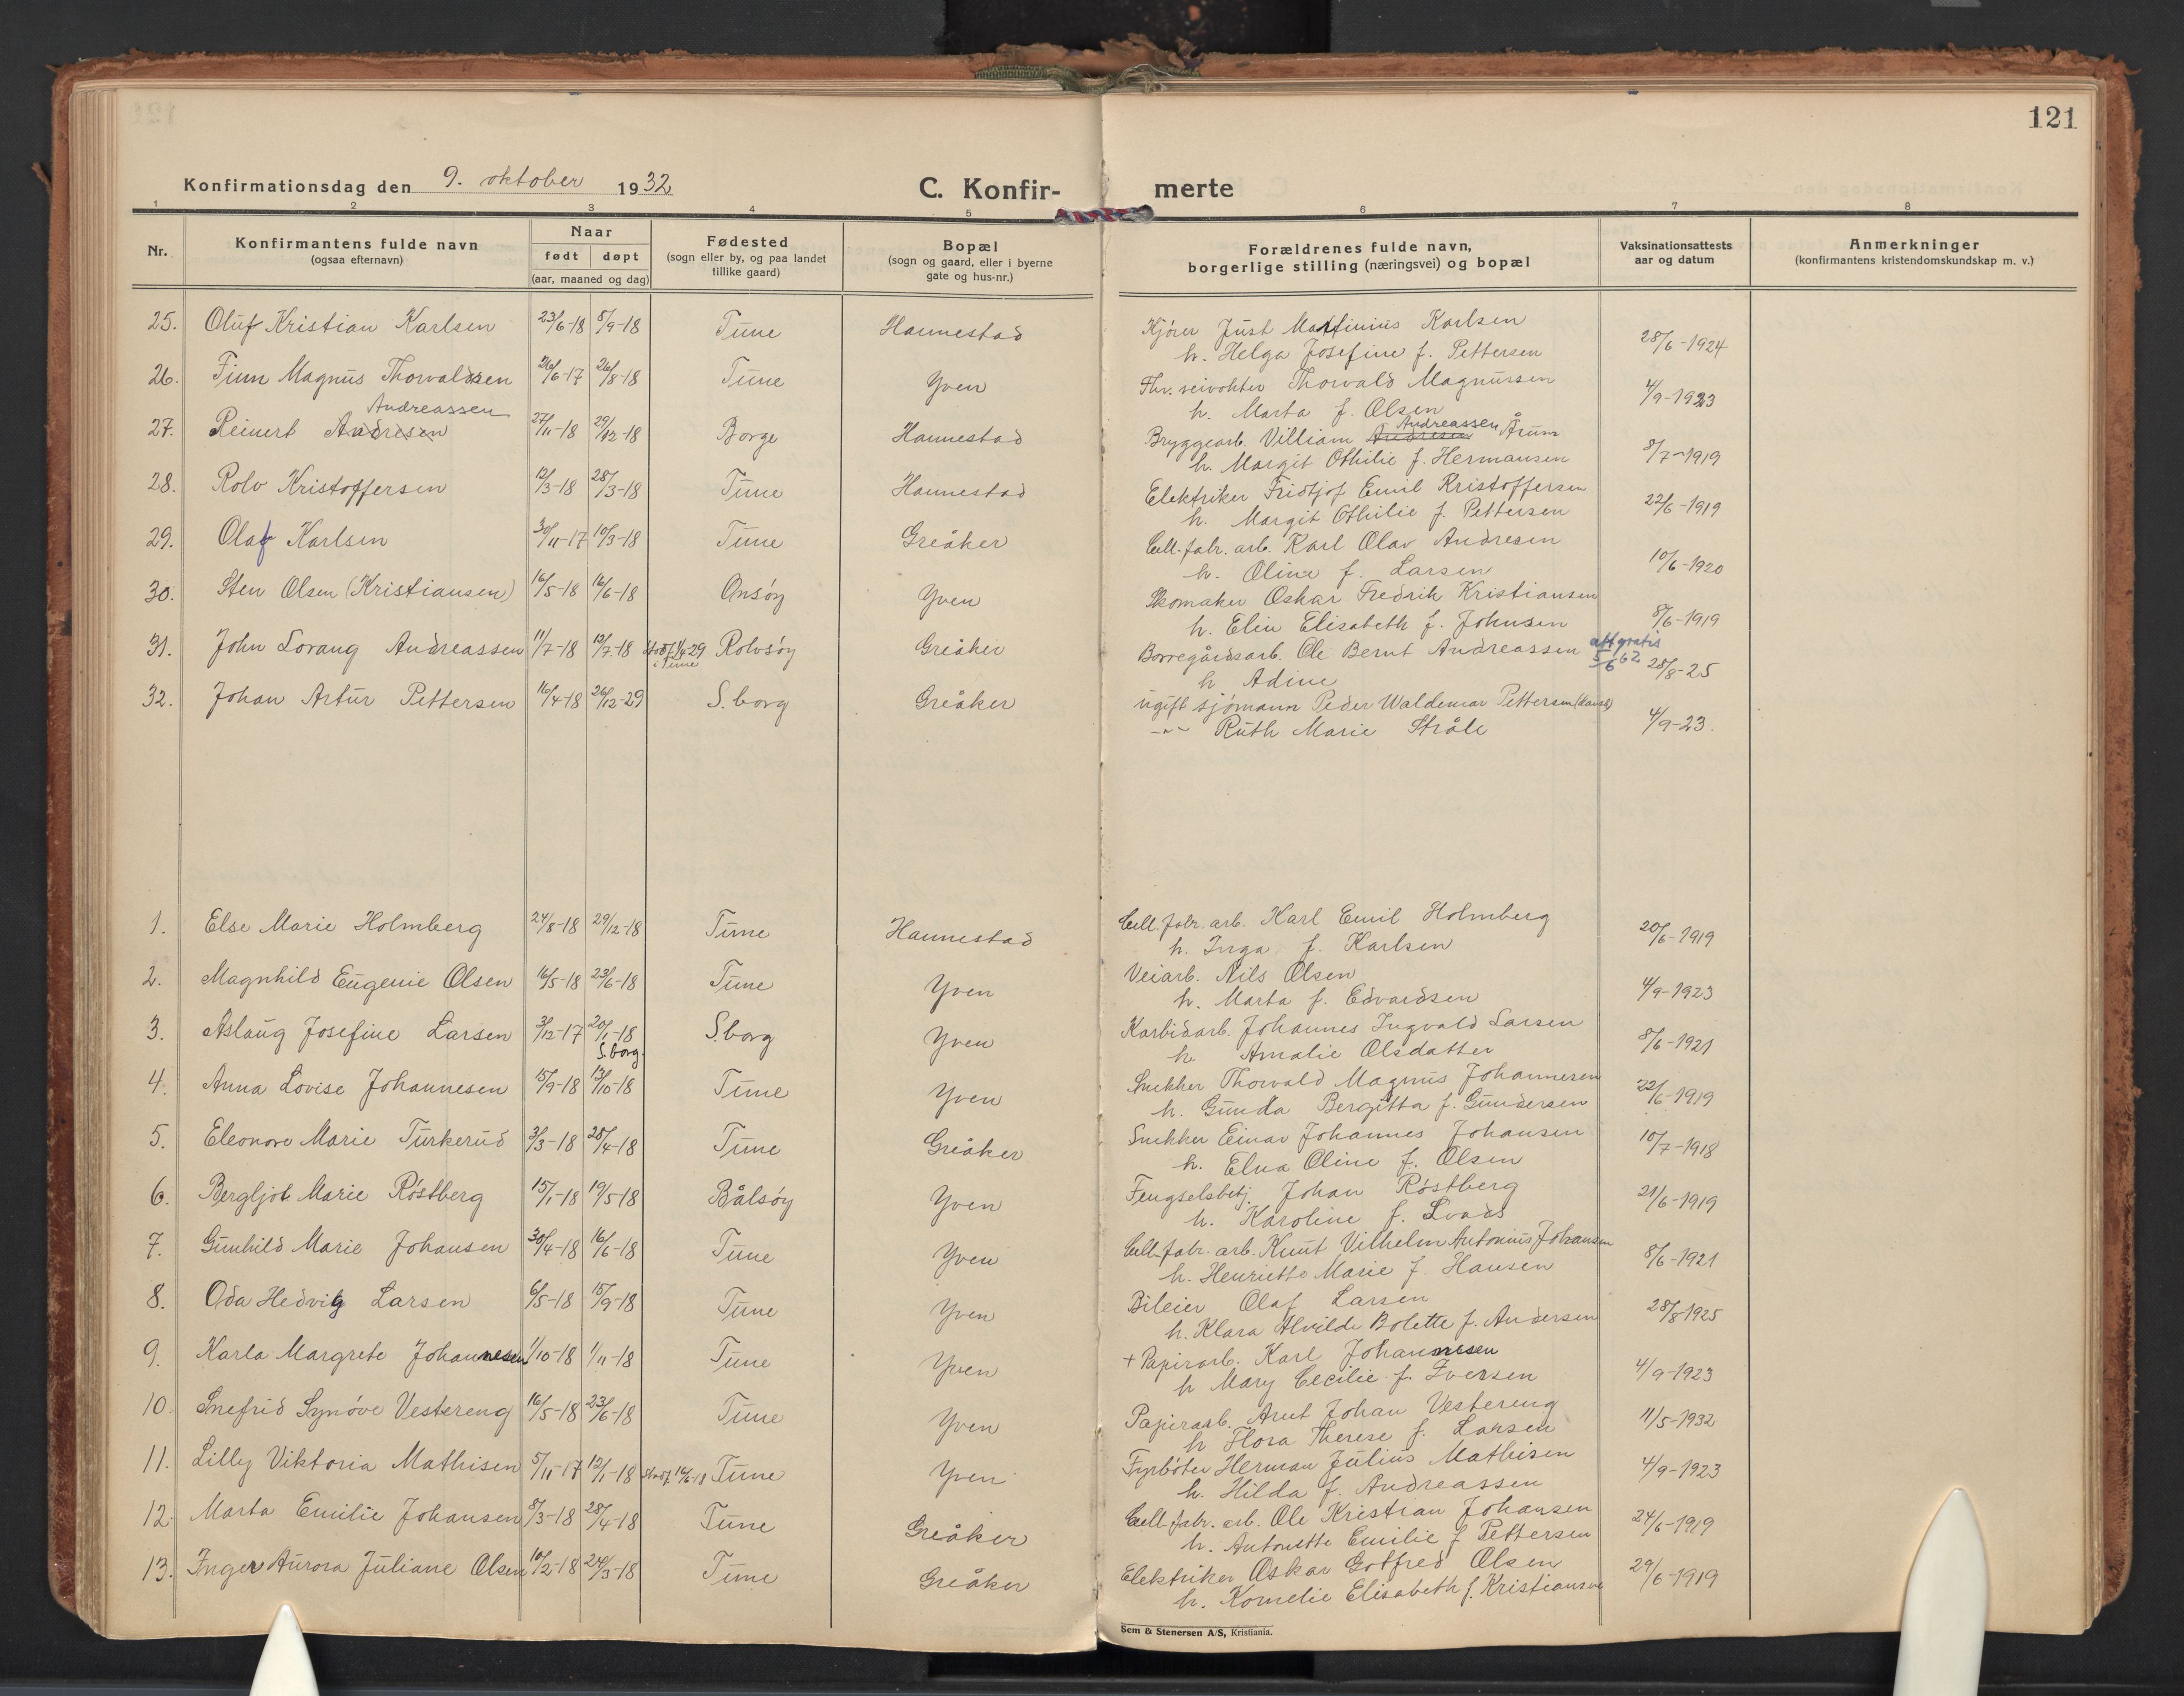 121
Konfirmationsdag den 9. oktober 1932
C. Konfir- merte
1 2 3 4 5 6 7 8
Nr.
Konfirmantens fulde navn
(ogsaa efternavn)
Naar
født døpt
(aar, maaned og dag)
Fødested
(sogn eller by, og paa landet
tillike gaard)
Bopæl
(sogn og gaard, eller i byerne
gate og hus-nr.)
Forældrenes fulde navn,
borgerlige stilling (næringsvei) og bopæl
Vaksinationsattests
aar og datum
Anmerkninger
(konfirmantens kristendomskundskap m. v.)
25. Oluf Kristian Karlsen 23/6-18 8/9-18 Tune Hannestad Kjører Just Martinius Karlsen
h. Helga Josefine f. Pettersen 28/6-1924
26. Finn Magnus Thorvaldsen 26/6-17 26/8-18 Tune Yven Fhr. veivokter Thorvald Magnussen
h. Marta f. Olsen 4/9-1923
Andreassen
27. Reinert Andresen 27/11-18 29/12-18 Borge Hannestad Bryggearb. Villiam Andresen Andreassen Årum
h. Margit Othilie f. Hermansen 8/7-1919
28. Rolv Kristoffersen 12/3-18 28/3-18 Tune Hannestad Elektriker Fridtjof Emil Kristoffersen
h. Margit Othilie f. Pettersen 22/6-1919
29. Olaf Karlsen 30/11-17 10/3-18 Tune Greåker Cell. fabr. arb. Karl Olav Andresen
h. Oline f. Larsen 10/6-1920
30. Sten Olsen (Kristiansen) 16/5-18 16/6-18 Onsöy Yven Skomaker Oskar Fredrik Kristiansen
h. Elin Elisabeth f. Johnsen 8/6-1919
31. John Lorang Andreassen 11/7-18 12/7-18 Rolvsöy Greåker Borregårdsarb. Ole Bernt Andreassen
i Tune
att gratis
5/6 62
h Adine 28/8-25
32. Johan Artur Pettersen 16/4-18 26/12-29 S.borg Greåker ugift sjömann Peder Waldemar Pettersen (dansk)
-"- Ruth Marie Ståle 4/9-23.
1. Else Marie Holmberg 24/8-18 29/12-18 Tune Hannestad Cell. fabr. arb. Karl Emil Holmberg
h. Inga f. Karlsen 20/6-1919
2. Magnhild Eugenie Olsen 16/5-18 23/6-18 Tune Yven Veiarb. Nils Olsen
h. Marta f. Edvardsen 4/9-1923
3. Aslaug Josefine Larsen 3/12-17 20/1-18 S.borg Yven Karbidarb. Johannes Ingvald Larsen
S.borg.
h. Amalie Olsdatter 8/6-1921
4. Anna Lovise Johannesen 15/9-18 13/10-18 Tune Yven Snekker Thorvald Magnus Johannesen
h. Gunda Bergitta f. Gundersen 22/6-1919
5. Eleonore Marie Turkerud 3/3-18 28/4-18 Tune Greåker Snekker Einar Johannes Johansen
h. Elna Oline f. Olsen 10/7-1918
6. Bergljot Marie Röstberg 15/1-18 19/5-18 Bålsöy Yven Fengselsbetj. Johan Röstberg
h. Karoline f. 21/6-1919
7. Gunhild Marie Johansen 30/4-18 16/6-18 Tune Yven Cell. fabr. arb. Knut Vilhelm Antonius Johansen
h. Henriette Marie f. Hansen 8/6-1921
8. Oda Hedvig Larsen 6/5-18 15/9-18 Tune Yven Bileier Olaf Larsen
h. Klara Alvilde Bolette f. Andersen 28/8-1925
9. Karla Margrete Johannesen 1/10-18 1/11-18 Tune Yven + Papirarb. Karl Johannesen
h Mary Cecilie f. Iversen 4/9-1923
10. Snefrid Synöve Vestereng 16/5-18 23/6-18 Tune Yven Papirarb. Arnt Johan Vestereng
h Flora Therese f. Larsen 11/5-1932
11. Lilly Viktoria Mathisen 5/11-17 12/1-18 Tune Yven Fyrböter Herman Julius Mathisen
h. Hilda f. Andreassen 4/9-1923
12. Marta Emilie Johansen 8/3-18 28/4-18 Tune Greåker Cell. fabr. arb. Ole Kristian Johansen
h. Antonette Emilie f Pettersen 24/6-1919
13. Inger Aurora Juliane Olsen 10/2-18 24/3-18 Tune Greåker Elektriker Oskar Gotfred Olsen
h. Kornelie Elisabeth f. Kristiansen 29/6-1919
Sem & Stenersen A/S, Kristiania.